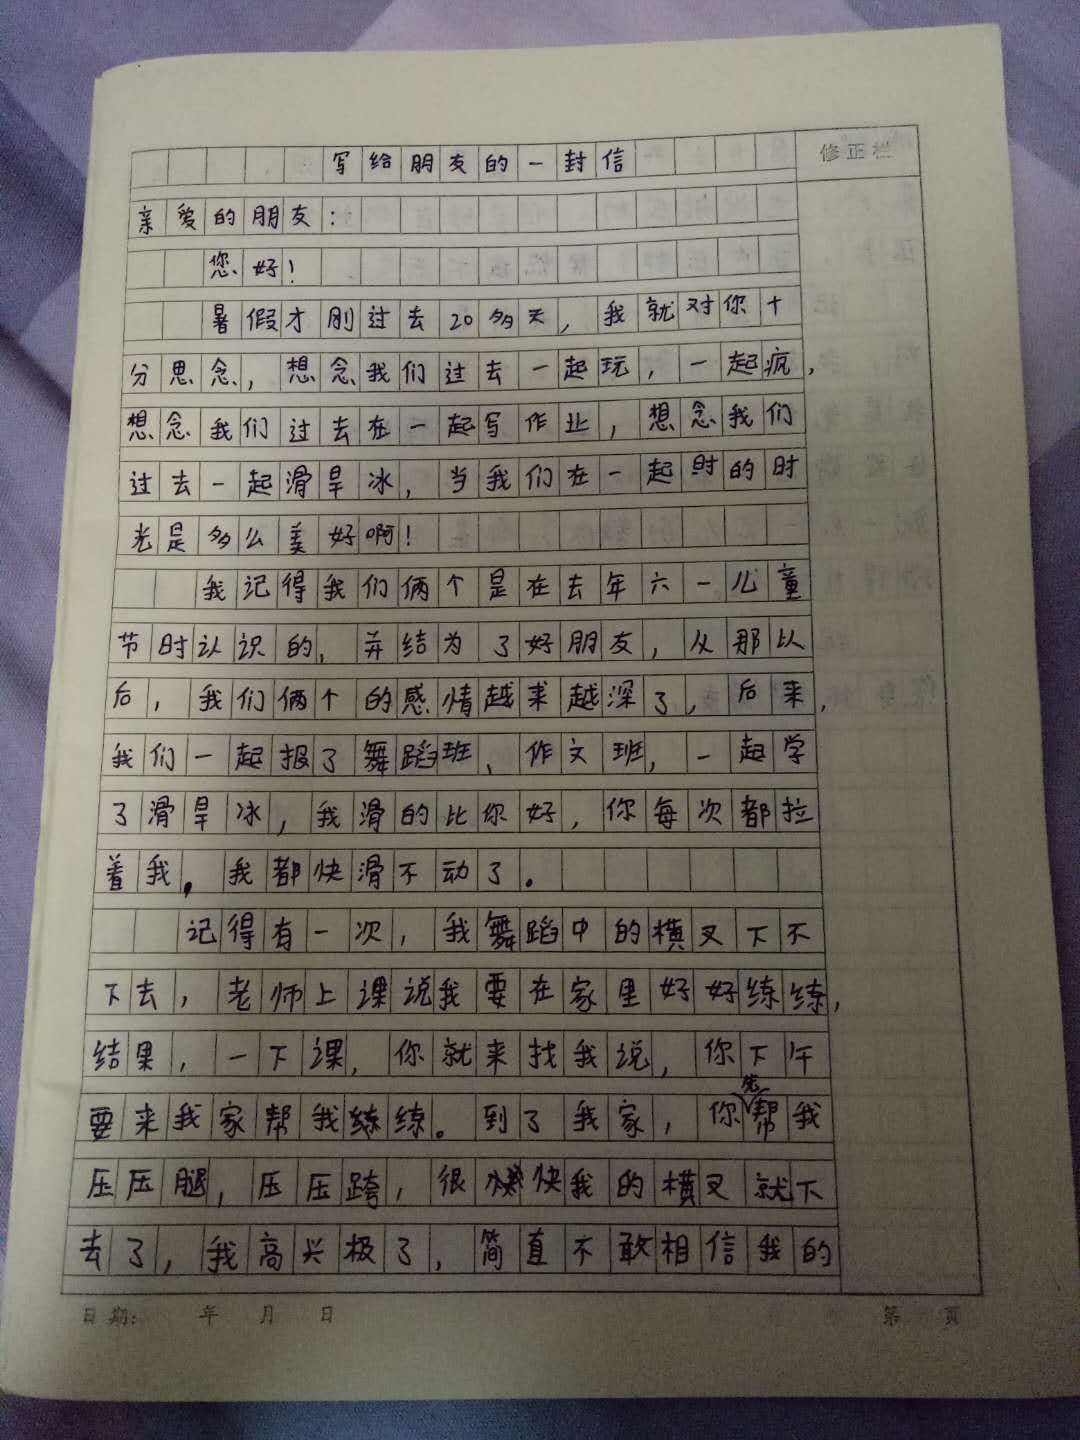 写给朋友的一封信
修正栏
亲爱的朋友：
您好！
暑假才刚过去20多天，我就对你十
分思念，想念我们过去一起玩，一起疯，
想念我们过去在一起写作业，想念我们
过去一起滑旱冰，当我们在一起时的时
光是多么美好啊！
我记得我们俩个是在去年六一儿童
节时认识的，并结为了好朋友，从那以
后，我们俩个的感情越来越深了，后来，
我们一起报了舞蹈班、作文班，一起学
了滑旱冰，我滑的比你好，你每次都拉
着我，我都快滑不动了。
记得有一次，我舞蹈中的横叉下不
下去，老师上课说我要在家里好好练练，
结果，一下课，你就来找我说，你下午
要来我家帮我练练。到了我家，你先帮我
压压腿，压压跨，很快我的横叉就下
去了，我高兴极了，简直不敢相信我的
日期： 年 月 日 第 页